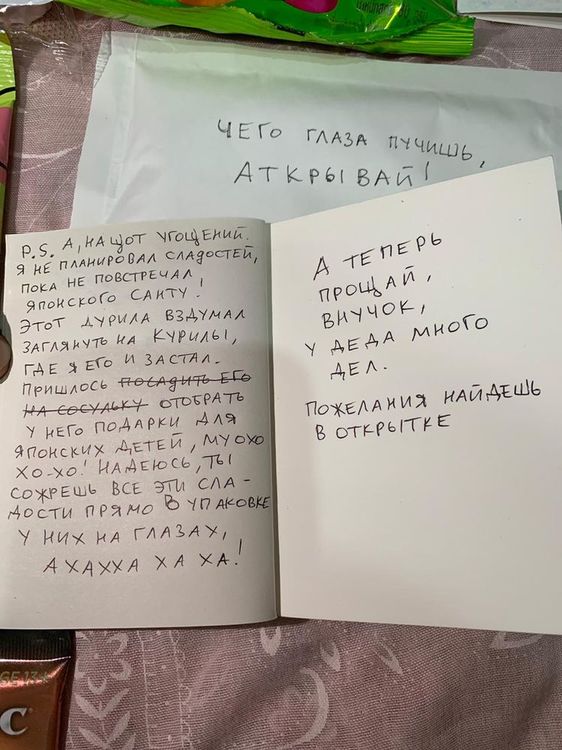 ЧЕГО ГЛАЗА ПУЧИШЬ,
АТКРЫВАЙ!
P.S. А, НА ЩОТ УГОЩЕНИЙ.
Я НЕ ПЛАНИРОВАЛ СЛАДОСТЕЙ,
ПОКА НЕ ПОВСТРЕЧАЛ
ЯПОНСКОГО САНТУ!
ЭТОТ ДУРИЛА ВЗДУМАЛ
ЗАГЛЯНУТЬ НА КУРИЛЫ,
ГДЕ Я ЕГО И ЗАСТАЛ.
ПРИШЛОСЬ ПОСАДИТЬ ЕГО
НА СОСУЛЬКУ ОТОБРАТЬ
У НЕГО ПОДАРКИ ДЛЯ
ЯПОНСКИХ ДЕТЕЙ, МУОХО
ХО-ХО! НАДЕЮСЬ, ТЫ
СОЖРЕШЬ ВСЕ ЭТИ СЛА-
ДОСТИ ПРЯМО В УПАКОВКЕ
У НИХ НА ГЛАЗАХ,
АХАХХА ХА ХА!
А ТЕПЕРЬ
ПРОЩАЙ,
ВНУЧОК,
У ДЕДА МНОГО
ДЕЛ.
ПОЖЕЛАНИЯ НАЙДЕШЬ
В ОТКРЫТКЕ